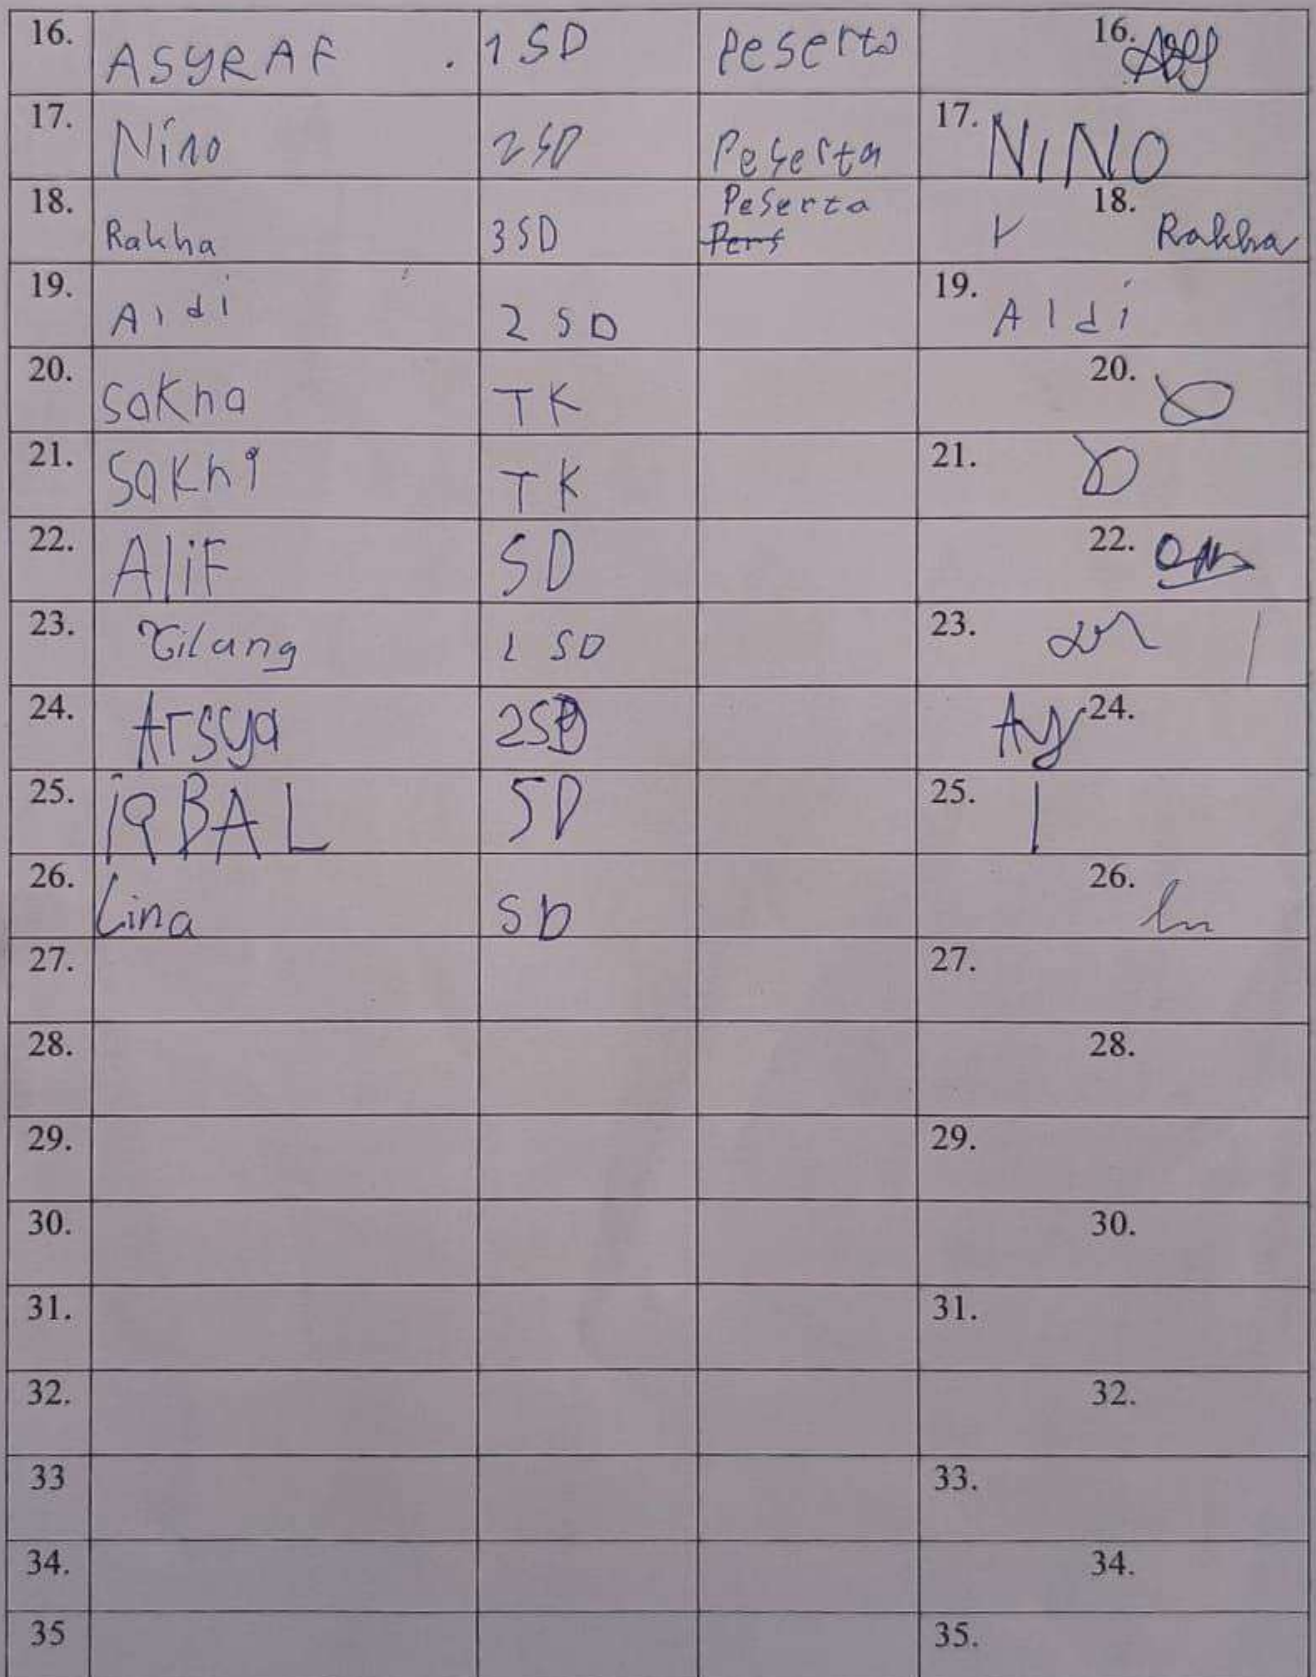 16. ASYRAF . 1 SD Peserta 16.
17. Nino 2 SD Peserta 17. NINO
18. Rakha 3 SD Peserta Pers 18. Rakha
19. Aldi 2 SD 19. Aldi
20. Sakha TK 20.
21. Sakhi TK 21.
22. AliF SD 22.
23. Gilang 1 SD 23.
24. Arsya 2SD 24.
25. iQBAL SD 25.
26. Lina SD 26.
27. 27.
28. 28.
29. 29.
30. 30.
31. 31.
32. 32.
33 33.
34. 34.
35 35.